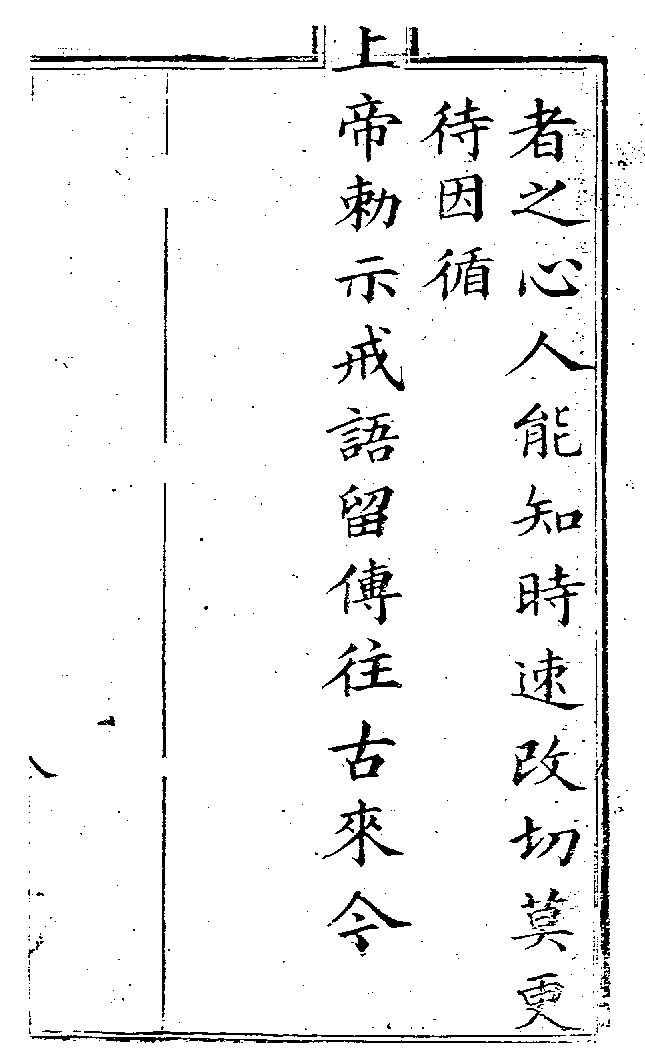 者之心人能知時速改切莫更
待因循
上帝勅示戒語留傳往古來今